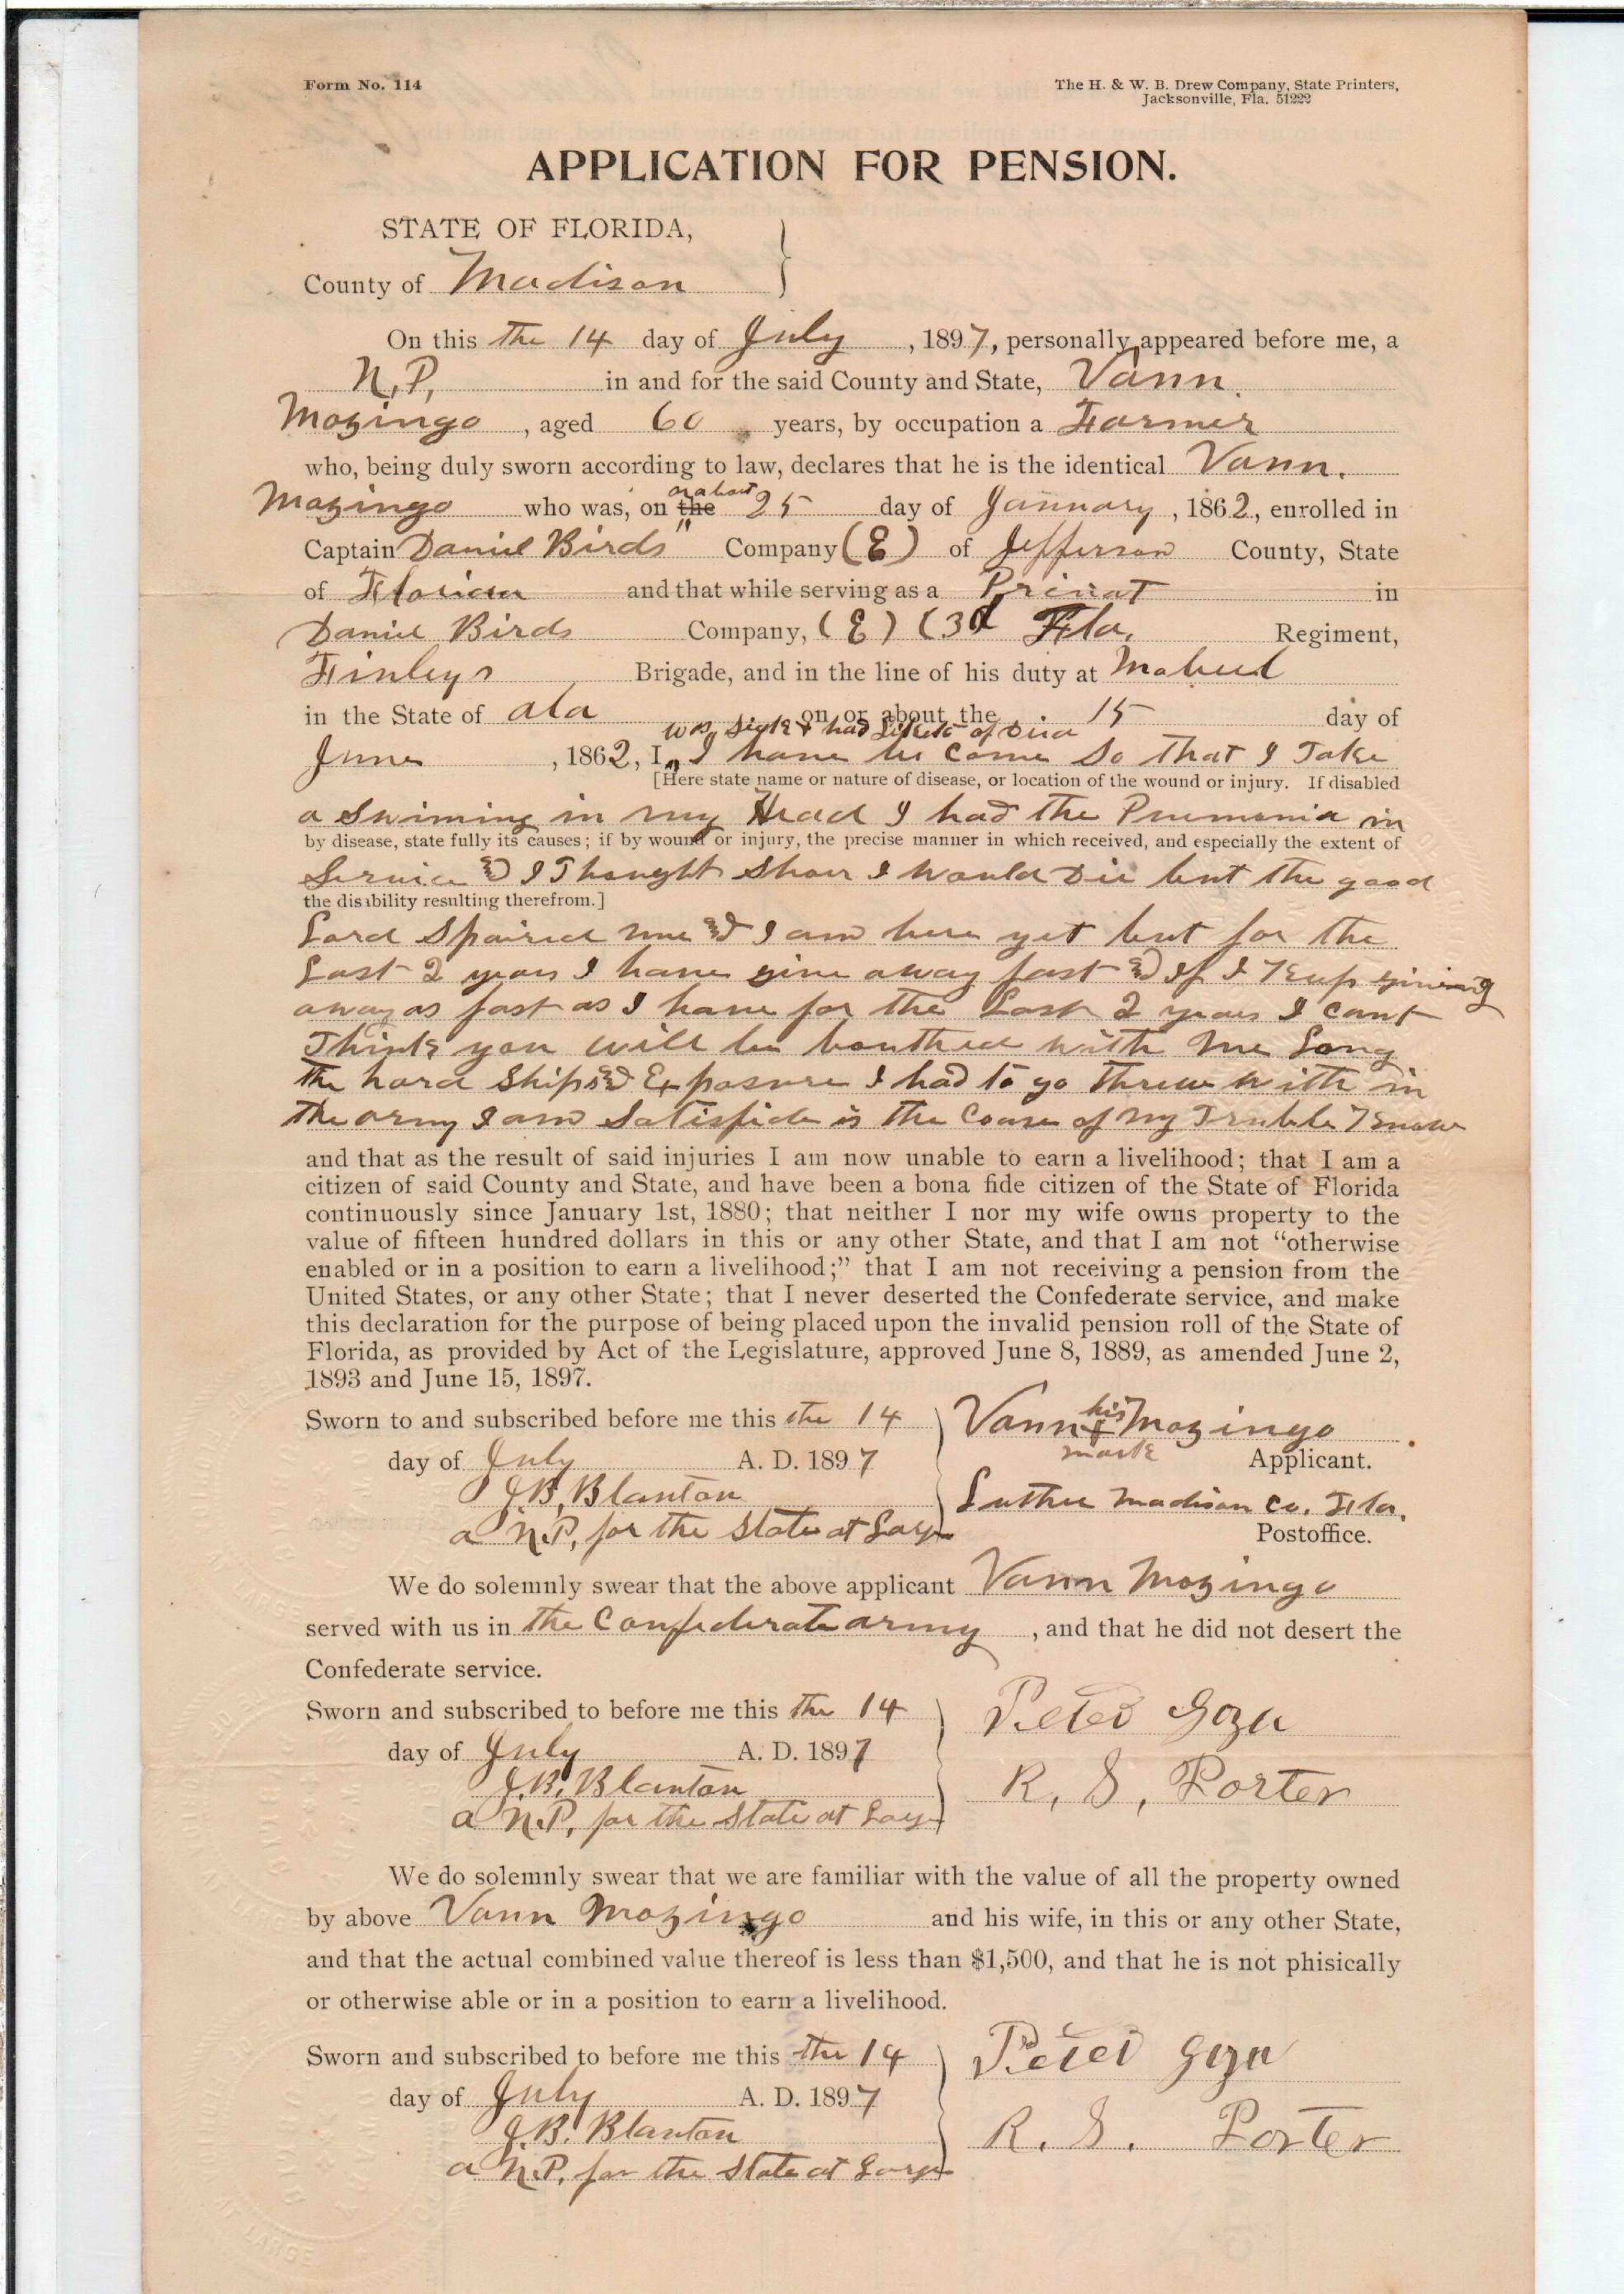 Form No. 114
The H. & W. B. Drew Company, State Printers,
Jacksonville, Fla. 51222
APPLICATION FOR PENSION.
STATE OF FLORIDA,
County of Madison
On this the 14 day of July , 1897, personally appeared before me, a
N,P, in and for the said County and State, Vann.
Mozingo , aged 60 years, by occupation a Farmer
who, being duly sworn according to law, declares that he is the identical Vann.
or about
Mozingo who was, on the 25 day of January , 1862, enrolled in
Captain Daniel Birds" Company (E) of Jefferson County, State
of Florida and that while serving as a Privat in
Daniel Birds Company, (E) (3d Fla. Regiment,
Finleys Brigade, and in the line of his duty at
in the State of ala on or about the 15 day of
was Sick & had
June , 1862, I, I have be come So that I Take
[Here state name or nature of disease, or location of the wound or injury. If disabled
a Swiming in my Head I had the Pnumonia in
by disease, state fully its causes; if by wound or injury, the precise manner in which received, and especially the extent of
Service and I Thought Shour I would Die but the good
the disability resulting therefrom.]
Lord Spaired me and I am here yet but for the
Last 2 years I have give away fast and If I Keep giving
away as fast as I have for the Last 2 years I cant
Think you will be bouthred with me Long
the hard Ships and Exposure I had to go threw with in
the army I am Satisfide is the Cause of my Truble I know
and that as the result of said injuries I am now unable to earn a livelihood; that I am a
citizen of said County and State, and have been a bona fide citizen of the State of Florida
continuously since January 1st, 1880; that neither I nor my wife owns property to the
value of fifteen hundred dollars in this or any other State, and that I am not “otherwise
enabled or in a position to earn a livelihood;” that I am not receiving a pension from the
United States, or any other State; that I never deserted the Confederate service, and make
this declaration for the purpose of being placed upon the invalid pension roll of the State of
Florida, as provided by Act of the Legislature, approved June 8, 1889, as amended June 2,
1893 and June 15, 1897.
Sworn to and subscribed before me this the 14
day of July A. D. 1897
J.B. Blanton
a N.P. for the State at Large
his
Vann X Mozingo
mark
Applicant.
Luther Madison Co. Fla.
Postoffice.
We do solemnly swear that the above applicant Vann Mozingo
served with us in the Confederate army , and that he did not desert the
Confederate service.
Sworn and subscribed to before me this the 14
day of July A. D. 1897
J.B. Blanton
a N.P. for the State at Large
Peter Goza
R. S. Porter
We do solemnly swear that we are familiar with the value of all the property owned
by above Vann Mozingo and his wife, in this or any other State,
and that the actual combined value thereof is less than $1,500, and that he is not phisically
or otherwise able or in a position to earn a livelihood.
Sworn and subscribed to before me this the 14
day of July A. D. 1897
J.B. Blanton
a N.P. for the State at Large
Peter Goza
R. S. Porter